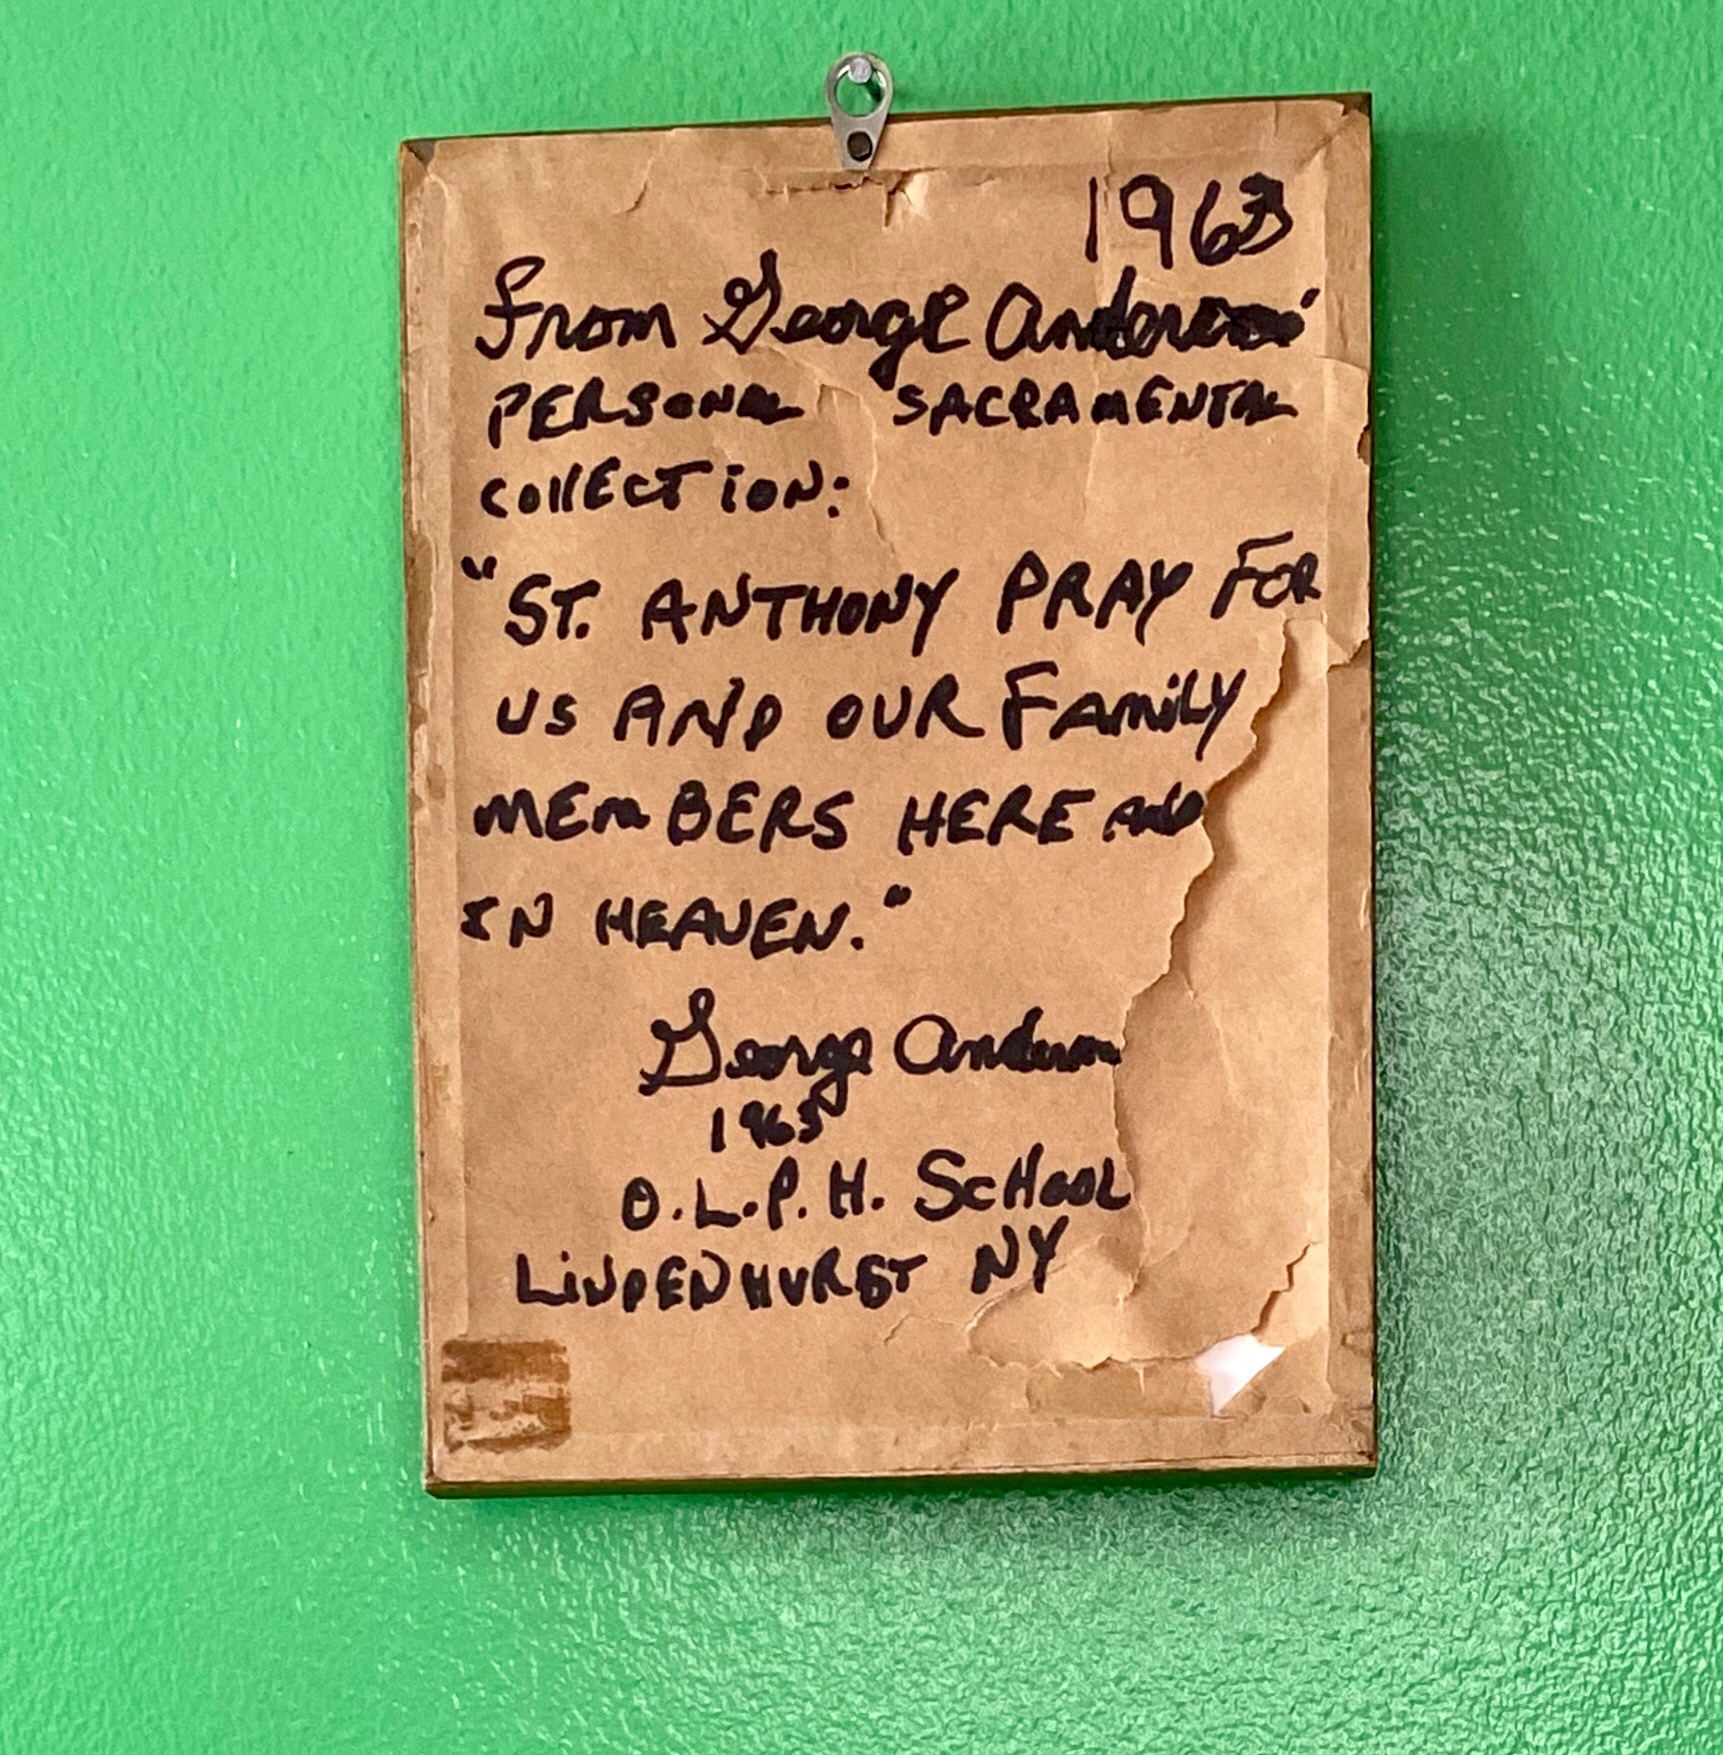 1963
From George Anderson'
PERSONAL SACRAMENTAL
COllECTiON:
"ST. ANTHONY PRAY FOR
US AND OUR FAMiLY
MEMBERS HERE AND
IN HEAVEN."
George Anderson
1965
O.L.P.H. SCHOOL
LiNDENHURST NY